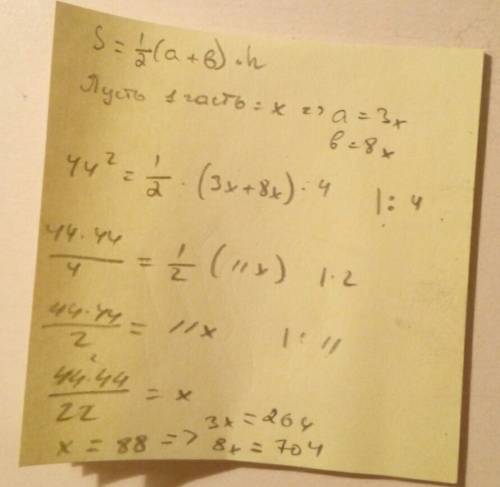 S = 1/2 (a + b) · h
Пусть 1 часть = x => a = 3x
b = 8x
44² = 1/2 · (3x + 8x) · 4 |: 4
44·44/4 = 1/2 (11x) |·2
44·44/2 = 11x |: 11
44²·44/22 = x
x = 88 => 3x = 264
8x = 704